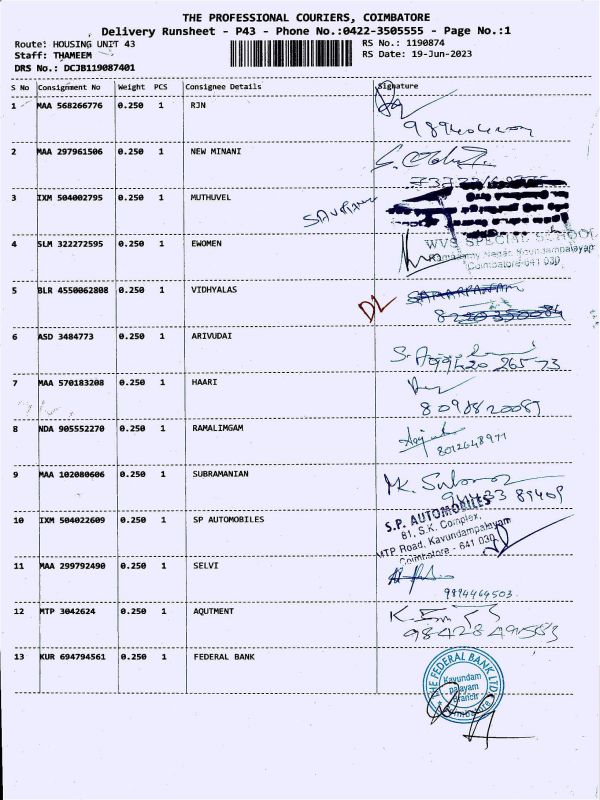 THE PROFESSIONAL COURIERS, COIMBATORE
Delivery Runsheet - P43 - Phone No.:0422-3505555 - Page No.:1
Route: HOUSING UNIT 43
RS No.: 1190874
Staff: THAMEEM
RS Date: 19-Jun-2023
DRS No.: DCJB119087401
S No Consignment No Weight PCS Consignee Details Signature
1 MAA 568266776 0.250 1 RJN
2 MAA 297961506 0.250 1 NEW MINANI
3 IXM 504002795 0.250 1 MUTHUVEL
4 SLM 322272595 0.250 1 EWOMEN
WVS SPECIAL SCHOOL
Nagar, Kavundampalayam
Coimbatore-641 030
5 BLR 4550062808 0.250 1 VIDHYALAS
DL
6 ASD 3484773 0.250 1 ARIVUDAI
99420 26573
7 MAA 570183208 0.250 1 HAARI
8098820089
8 NDA 905552270 0.250 1 RAMALIMGAM
8012648971
9 MAA 102080606 0.250 1 SUBRAMANIAN
MK.
10 IXM 504022609 0.250 1 SP AUTOMOBILES
S.P. AUTOMOBILES
81, S.K. Complex,
MTP Road, Kavundampalayam
Coimbatore - 641 030
11 MAA 299792490 0.250 1 SELVI
9894464503
12 MTP 3042624 0.250 1 AQUTMENT
13 KUR 694794561 0.250 1 FEDERAL BANK
THE FEDERAL BANK LTD.
Kavundam
palayam
Branch
Coimbatore